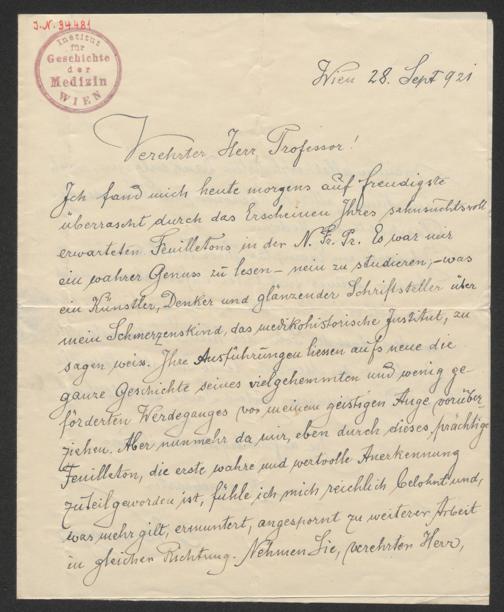 J.N. 34.481
Institut
für
Geschichte
der
Medizin
WIEN
Wien 28. Sept 921
Verehrter Herr Professor!
Ich fand mich heute morgens auf freudigste
überrascht durch das Erscheinen Ihres sehnsuchtsvoll
erwarteten Feuilletons in der N. Fr. Pr. Es war mir
ein wahrer Genuss zu lesen – nein zu studieren, – was
ein Künstler, Denker und glänzender Schriftsteller über
mein Schmerzenskind, das medikohistorische Institut, zu
sagen weiss. Ihre Ausführungen liessen aufs neue die
ganze Geschichte seines vielgehemmten und wenig ge-
förderten Werdeganges vor meinem geistigen Auge vorüber-
ziehen. Aber nunmehr da mir, eben durch dieses prächtige
Feuilleton, die erste wahre und wertvolle Anerkennung
zuteil geworden ist, fühle ich mich reichlich belohnt und,
was mehr gilt, ermuntert, angespornt zu weiterer Arbeit
in gleicher Richtung. Nehmen Sie, verehrter Herr,